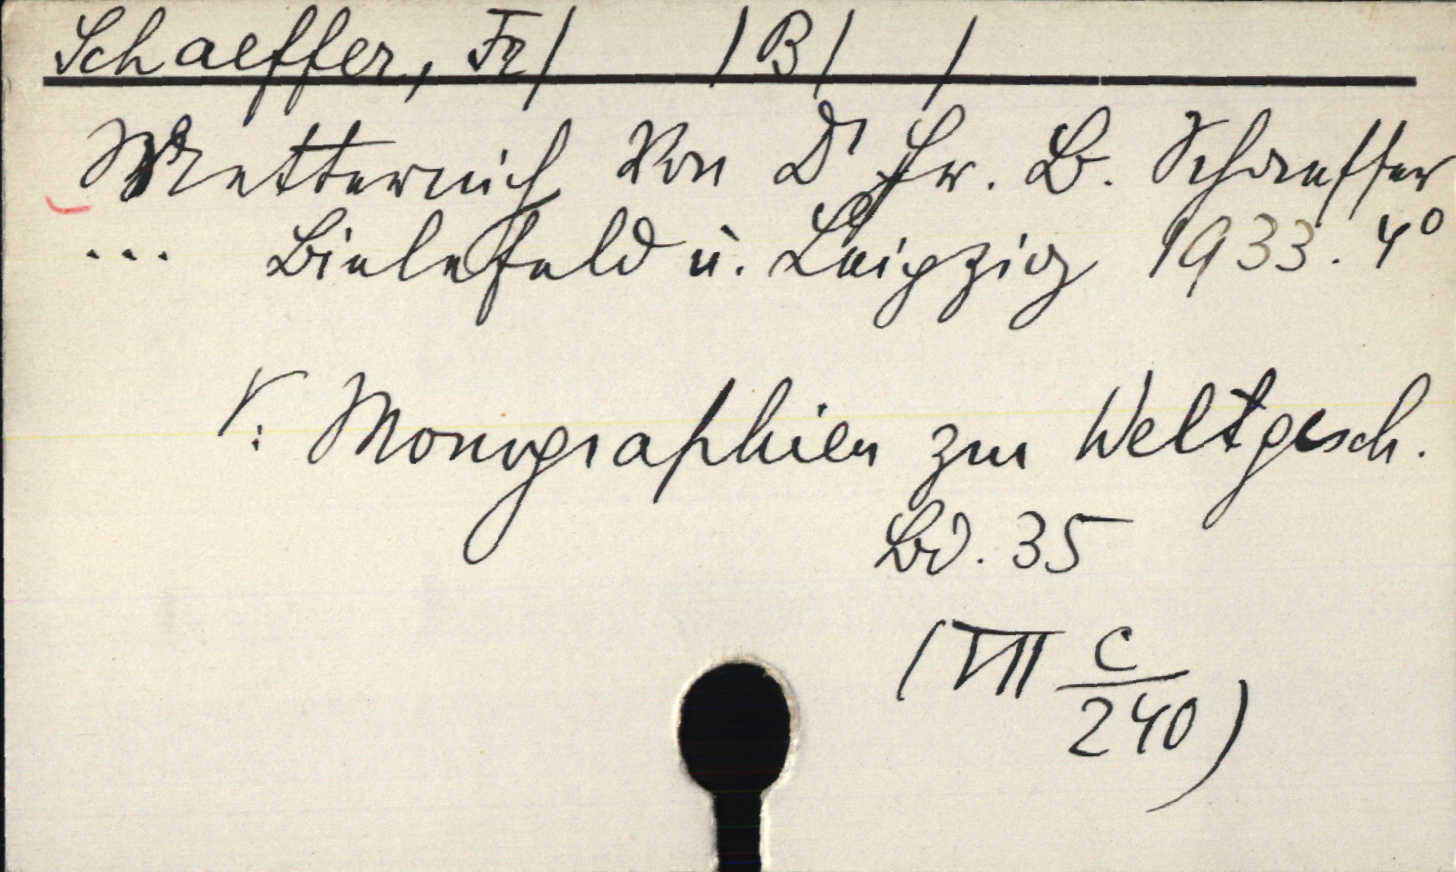 Schaeffer, Fr/ /B/ /
Metternich Von Dr Fr. B. Schaeffer
... Bielefeld u. Leipzig 1933. 4°
V: Monographien zur Weltgesch.
Bd. 35
(VII C/240)